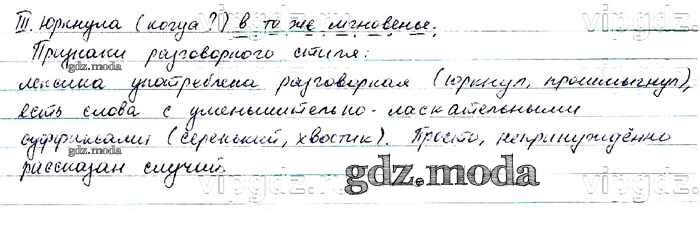 III. Юркнула (когда?) в то же мгновенье.
Признаки разговорного стиля:
лексика употреблена разговорная (юркнул, прошмыгнул),
есть слова с уменьшительно-ласкательными
суффиксами (серенький, хвостик). Просто, непринуждённо
рассказан случай.
gdz.moda
gdz.moda
gdz.moda